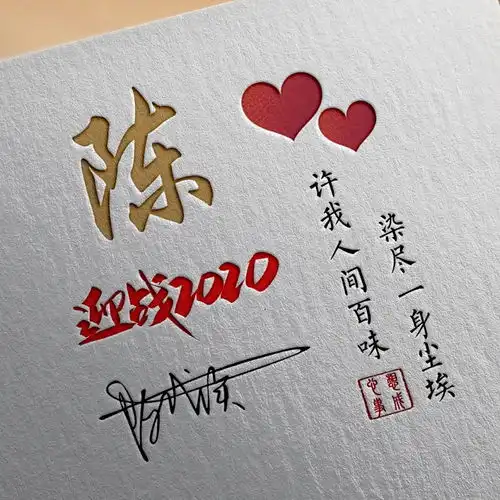 陈
迎战2020
染尽一身尘埃
许我人间百味